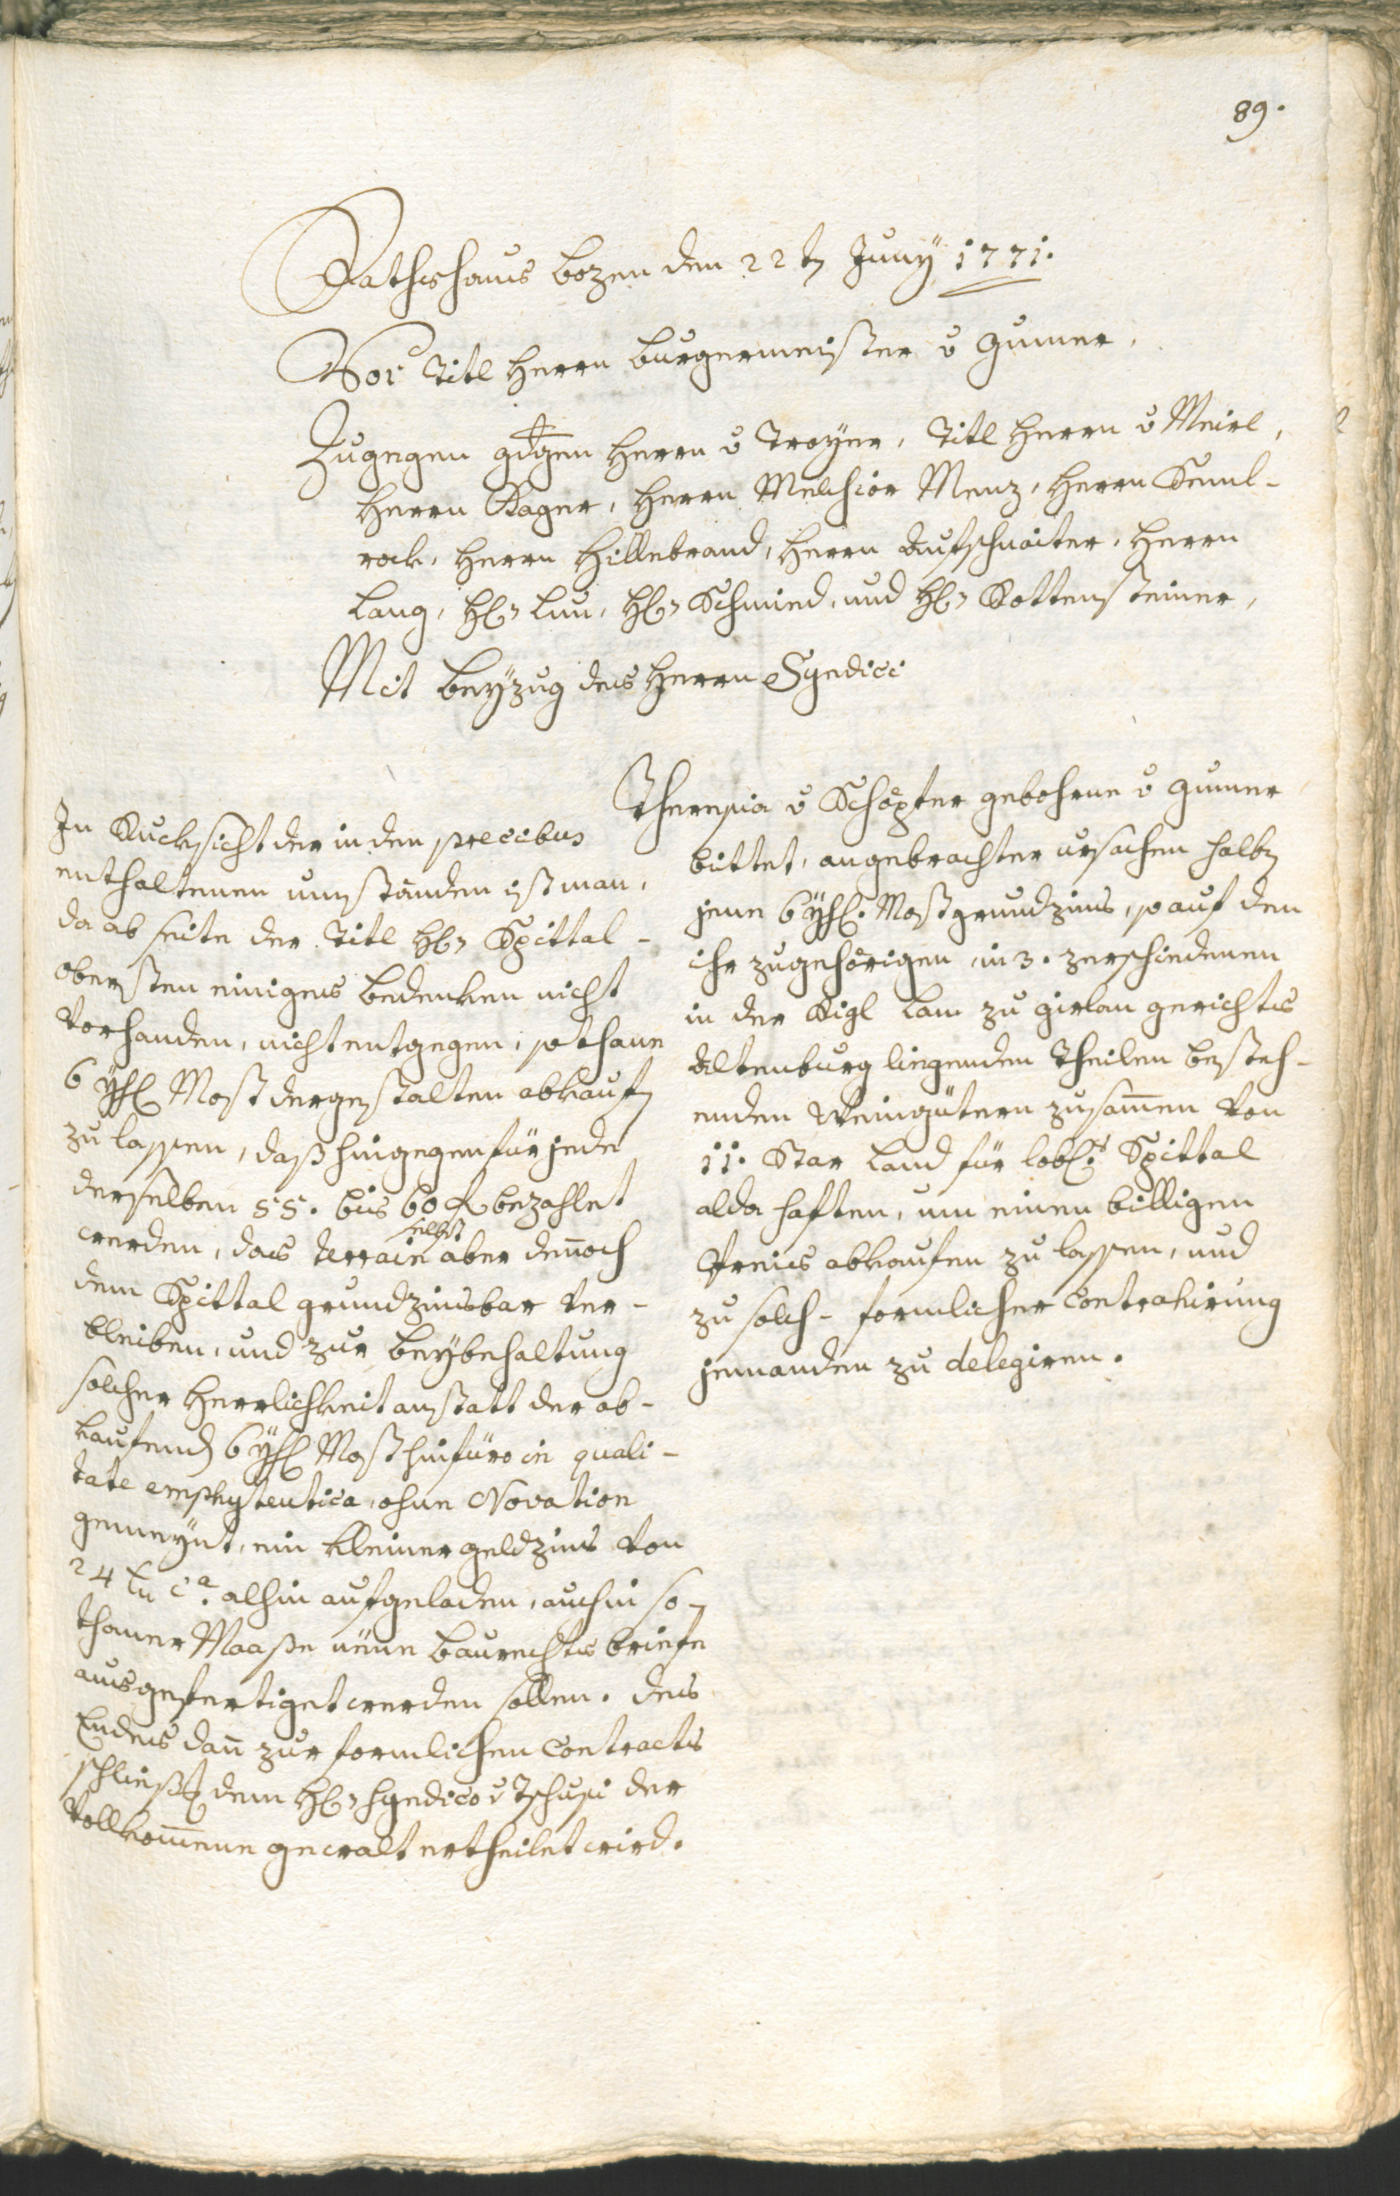 89.
Rathshaus Bozen den 22tn Juny 1771.
Vor Titl Herrn Burgermeister v Gumer,
Zugegen Herrn v Troyer, Titl Herrn v Meirl,
Herrn Kager, Herrn Melchior Menz, Herrn Keml-
rok, Herrn Hillebrand, Herrn Aufschnaiter, Herrn
Lang, H: Lun, H: Schmied, und H: Rottensteiner,
Mit Beyzug des Herrn Syndici
Theresia v Schöpfer gebohrne v Gumer
bittet, angebrachter ursachen halbn
jene 6 yhl. Mostgrundzins, so auf den
ihr zugehörigen in 3. zerschiedenen
in der Rigl Lam zu Girlan Gerichts
Altenburg liegenden Theilen besteh-
enden Weingütern zusamen von
11. Star Land für lobl: Spittal
alda haften, um einen billigen
Preis abkaufen zu lassen, und
zu solch-formlicher Contrahirung
jemanden zu delegiren.
In Rucksicht der in den precibus
enthaltenen umständen ist man,
da ab seite der Titl H: Spittal-
obersten einiges bedenken nicht
vorhanden, nicht entgegen, sothane
6 yhl Most dergestalten abkaufn
zu lassen, daß hingegen für jede
derselben 55. bis 60 f bezahlet
werden, das terrain selbst aber denoch
dem Spittal grundzinsbar ver-
bleiben, und zur Beybehaltung
solcher Herrlichkeit anstatt der ab-
kaufend 6 yhl Most hinfüro in quali-
tate emphyteutica, ohne Novation
gemeynt, ein kleiner geldzins von
24 kr ca. alhin aufgeladen, auch in so-
thaner Maaße neue Baurechts briefe
ausgefertiget werden sollen. des
Endes dan zur formlichen Contracts
schließ dem H: Syndico v Tschusi der
vollkomene gewalt ertheilet wird.